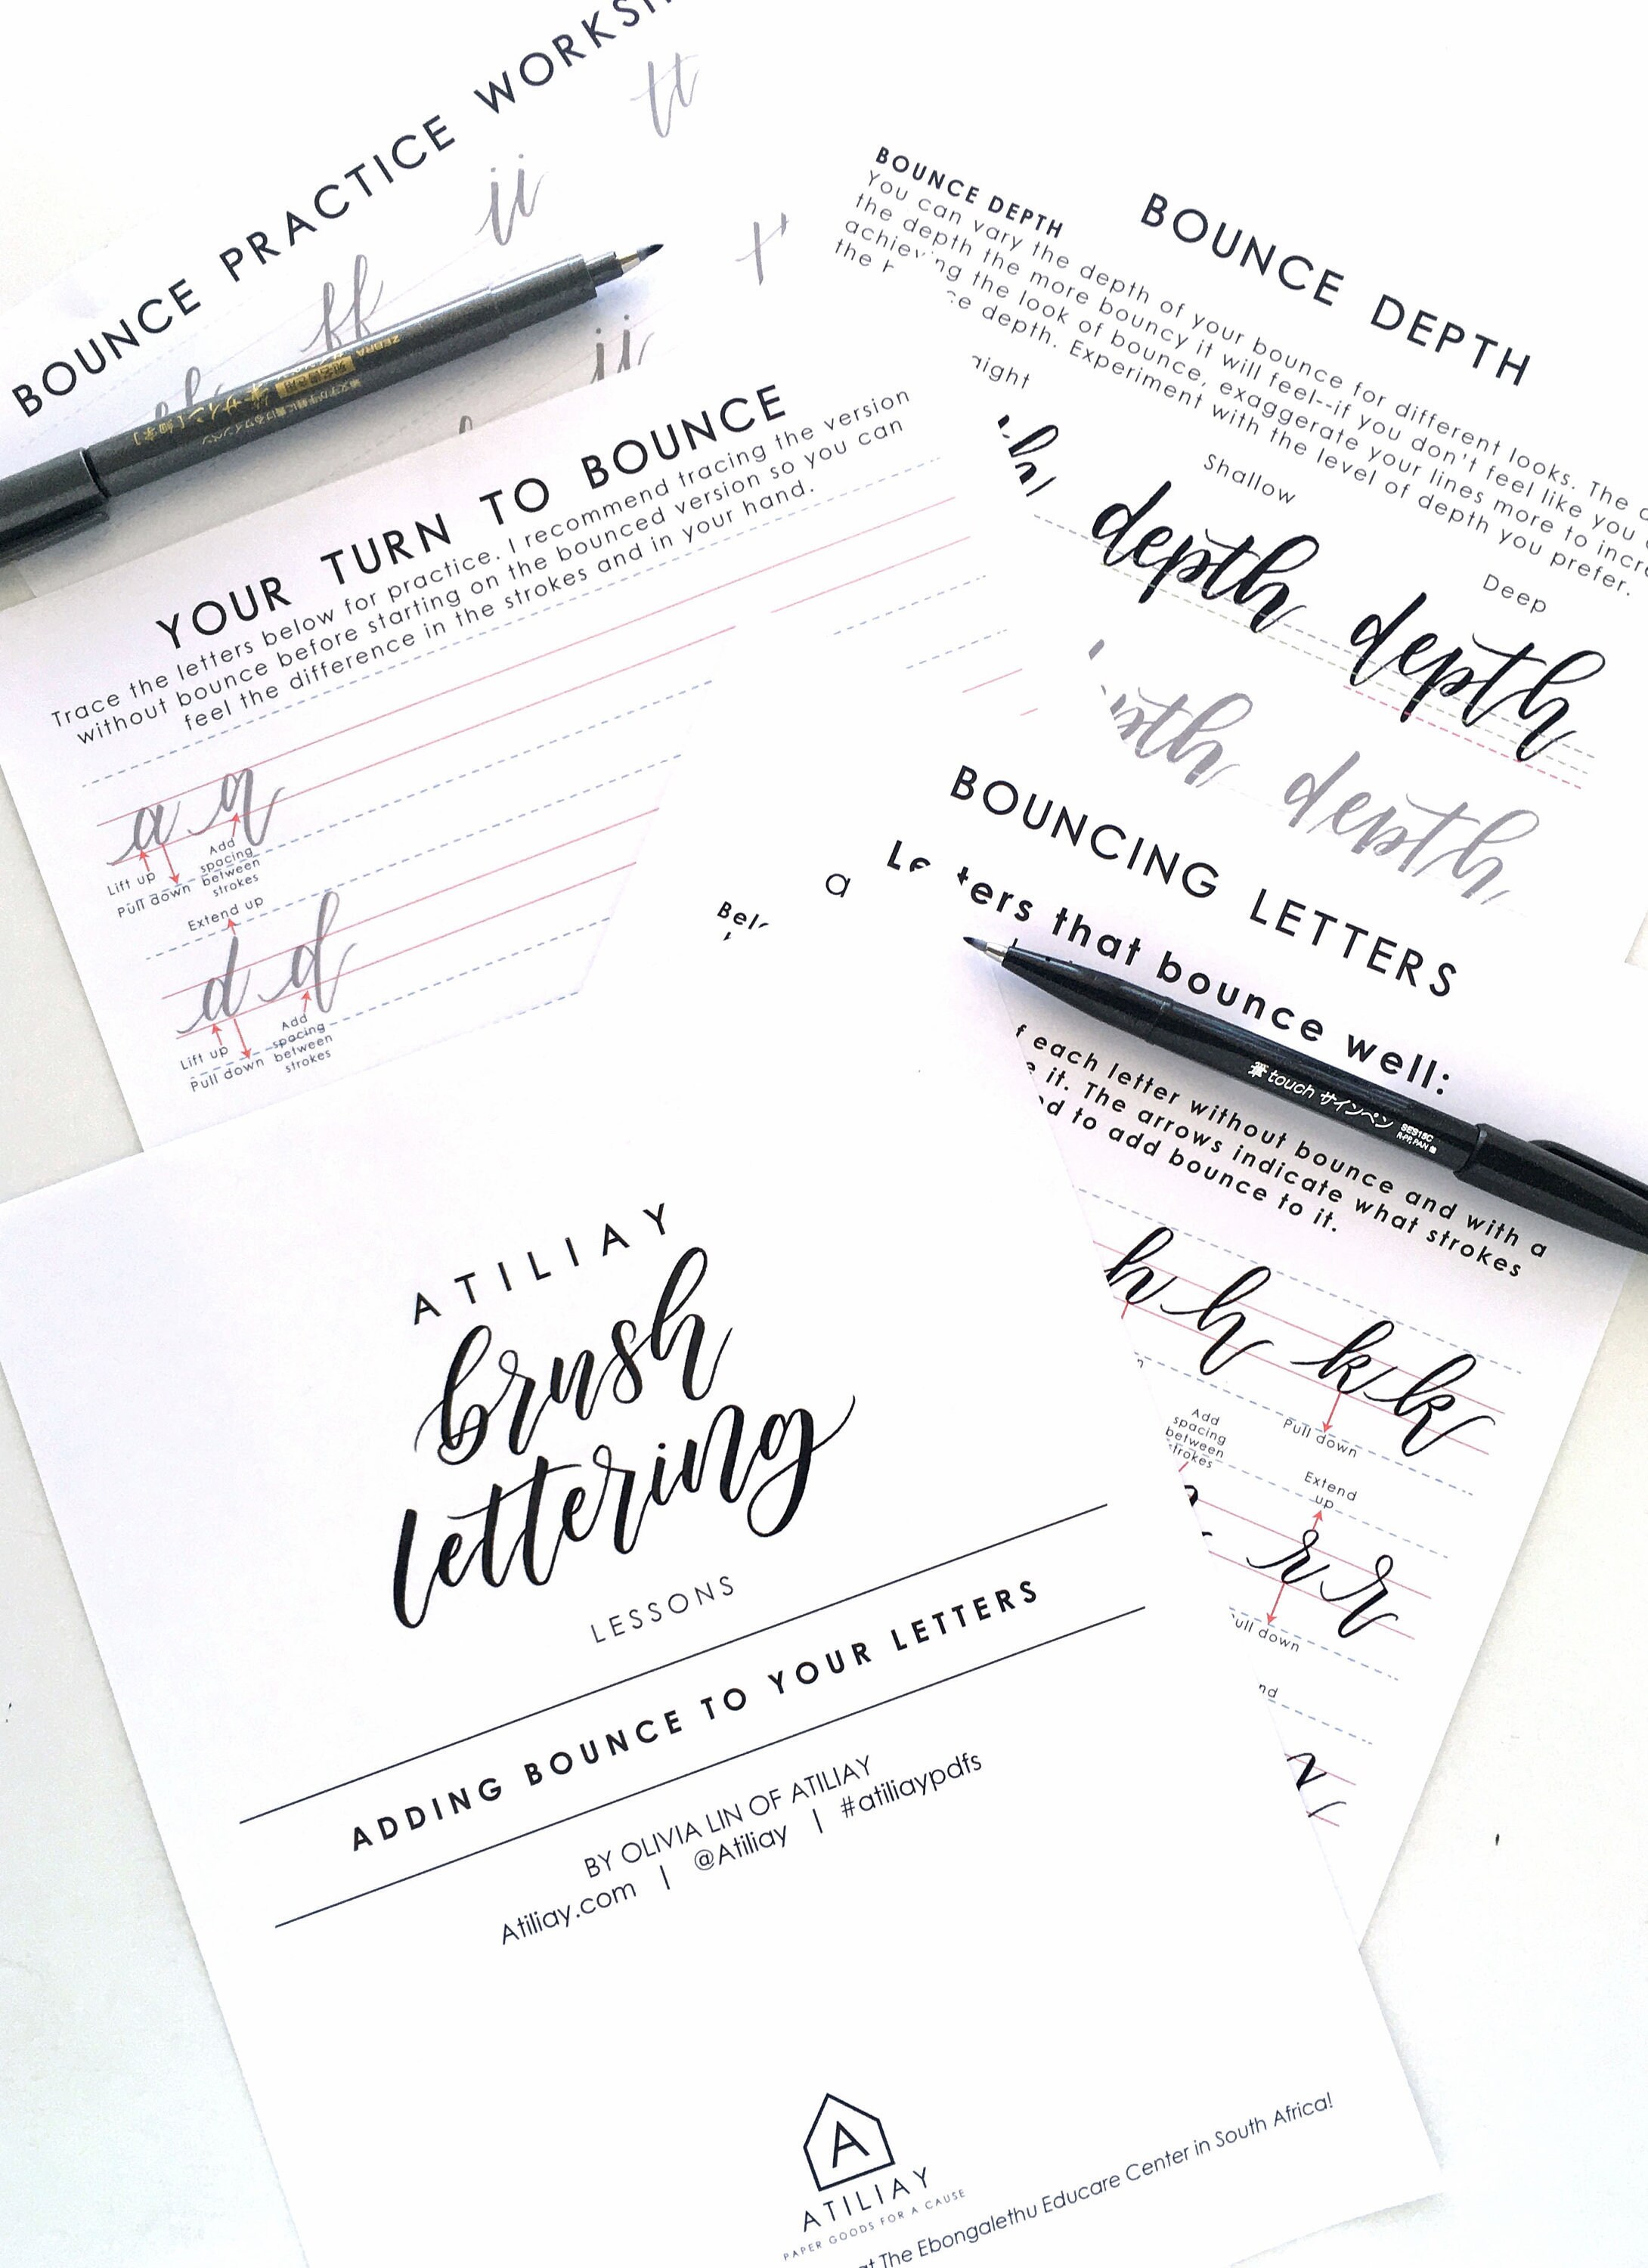 BOUNCE PRACTICE
tt
ii
ff
ii
ZEBRA
YOUR TURN TO BOUNCE
Trace the letters below for practice. I recommend tracing the version
without bounce before starting on the bounced version so you can
feel the difference in the strokes and in your hand.
a a
Lift up
Pull down
Add
spacing
between
strokes
Extend up
d d
Lift up
Pull down
Add
spacing
between
strokes
BOUNCE DEPTH
BOUNCE DEPTH
You can vary the depth of your bounce for different looks. The
the depth the more bouncy it will feel--if you don't feel like you
the look of bounce, exaggerate your lines more to
depth. Experiment with the level of depth you prefer.
Shallow
Deep
depth depth
depth
BOUNCING LETTERS
that bounce well:
each letter without bounce and with a
it. The arrows indicate what strokes
to add bounce to it.
筆touch サインペン
SES15C
h h k k
Pull down
Add
spacing
between
Extend
up
r r
down
ATILIAY
brush
lettering
LESSONS
ADDING BOUNCE TO YOUR LETTERS
BY OLIVIA LIN OF ATILIAY
Atiliay.com | @Atiliay | #atiliaypdfs
A
ATILIAY
PAPER GOODS FOR A CAUSE
The Ebongalethu Educare Center in South Africa!